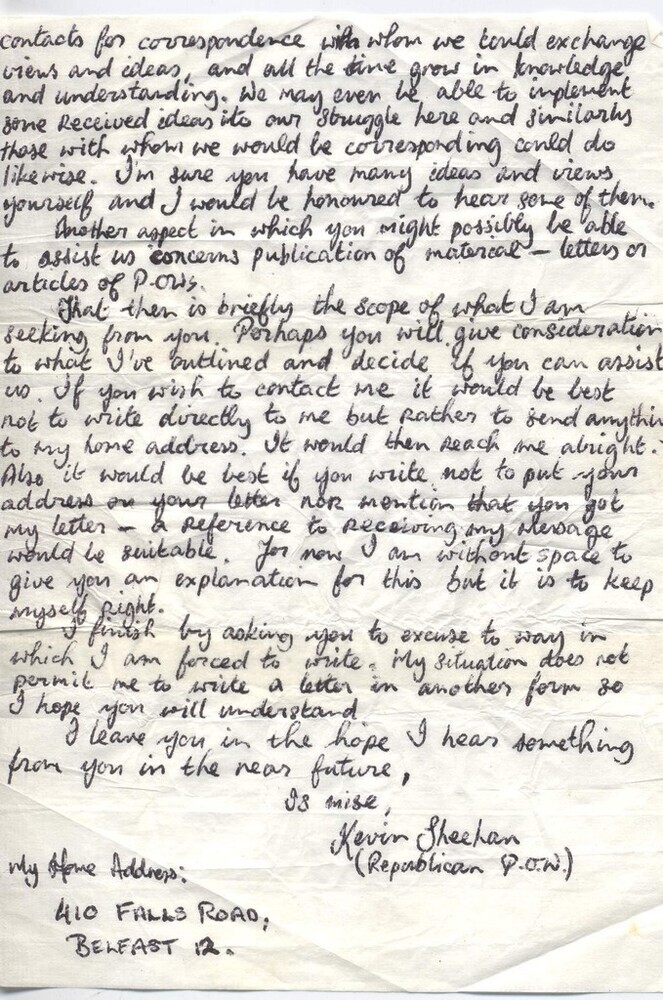 contacts for correspondence with whom we could exchange
views and ideas, and all the time grow in knowledge
and understanding. We may even be able to implement
some received ideas ito our struggle here and similarly
those with whom we would be corresponding could do
likewise. I'm sure you have many ideas and views
yourself and I would be honoured to hear some of them.
Another aspect in which you might possibly be able
to assist us concerns publication of material – letters or
articles of P.O.Ws.
That then is briefly the scope of what I am
seeking from you. Perhaps you will give consideration
to what I've outlined and decide if you can assist
us. If you wish to contact me it would be best
not to write directly to me but rather to send anythin
to my home address. It would then reach me alright.
Also it would be best if you write not to put your
address on your letter nor mention that you got
my letter – a reference to receiving my message
would be suitable. For now I am without space to
give you an explanation for this but it is to keep
myself right.
I finish by asking you to excuse to way in
which I am forced to write. My situation does not
permit me to write a letter in another form so
I hope you will understand
I leave you in the hope I hear something
from you in the near future,
Is mise,
Kevin Sheehan
(Republican P.O.W.)
My Home Address:
410 FALLS ROAD,
BELFAST 12.